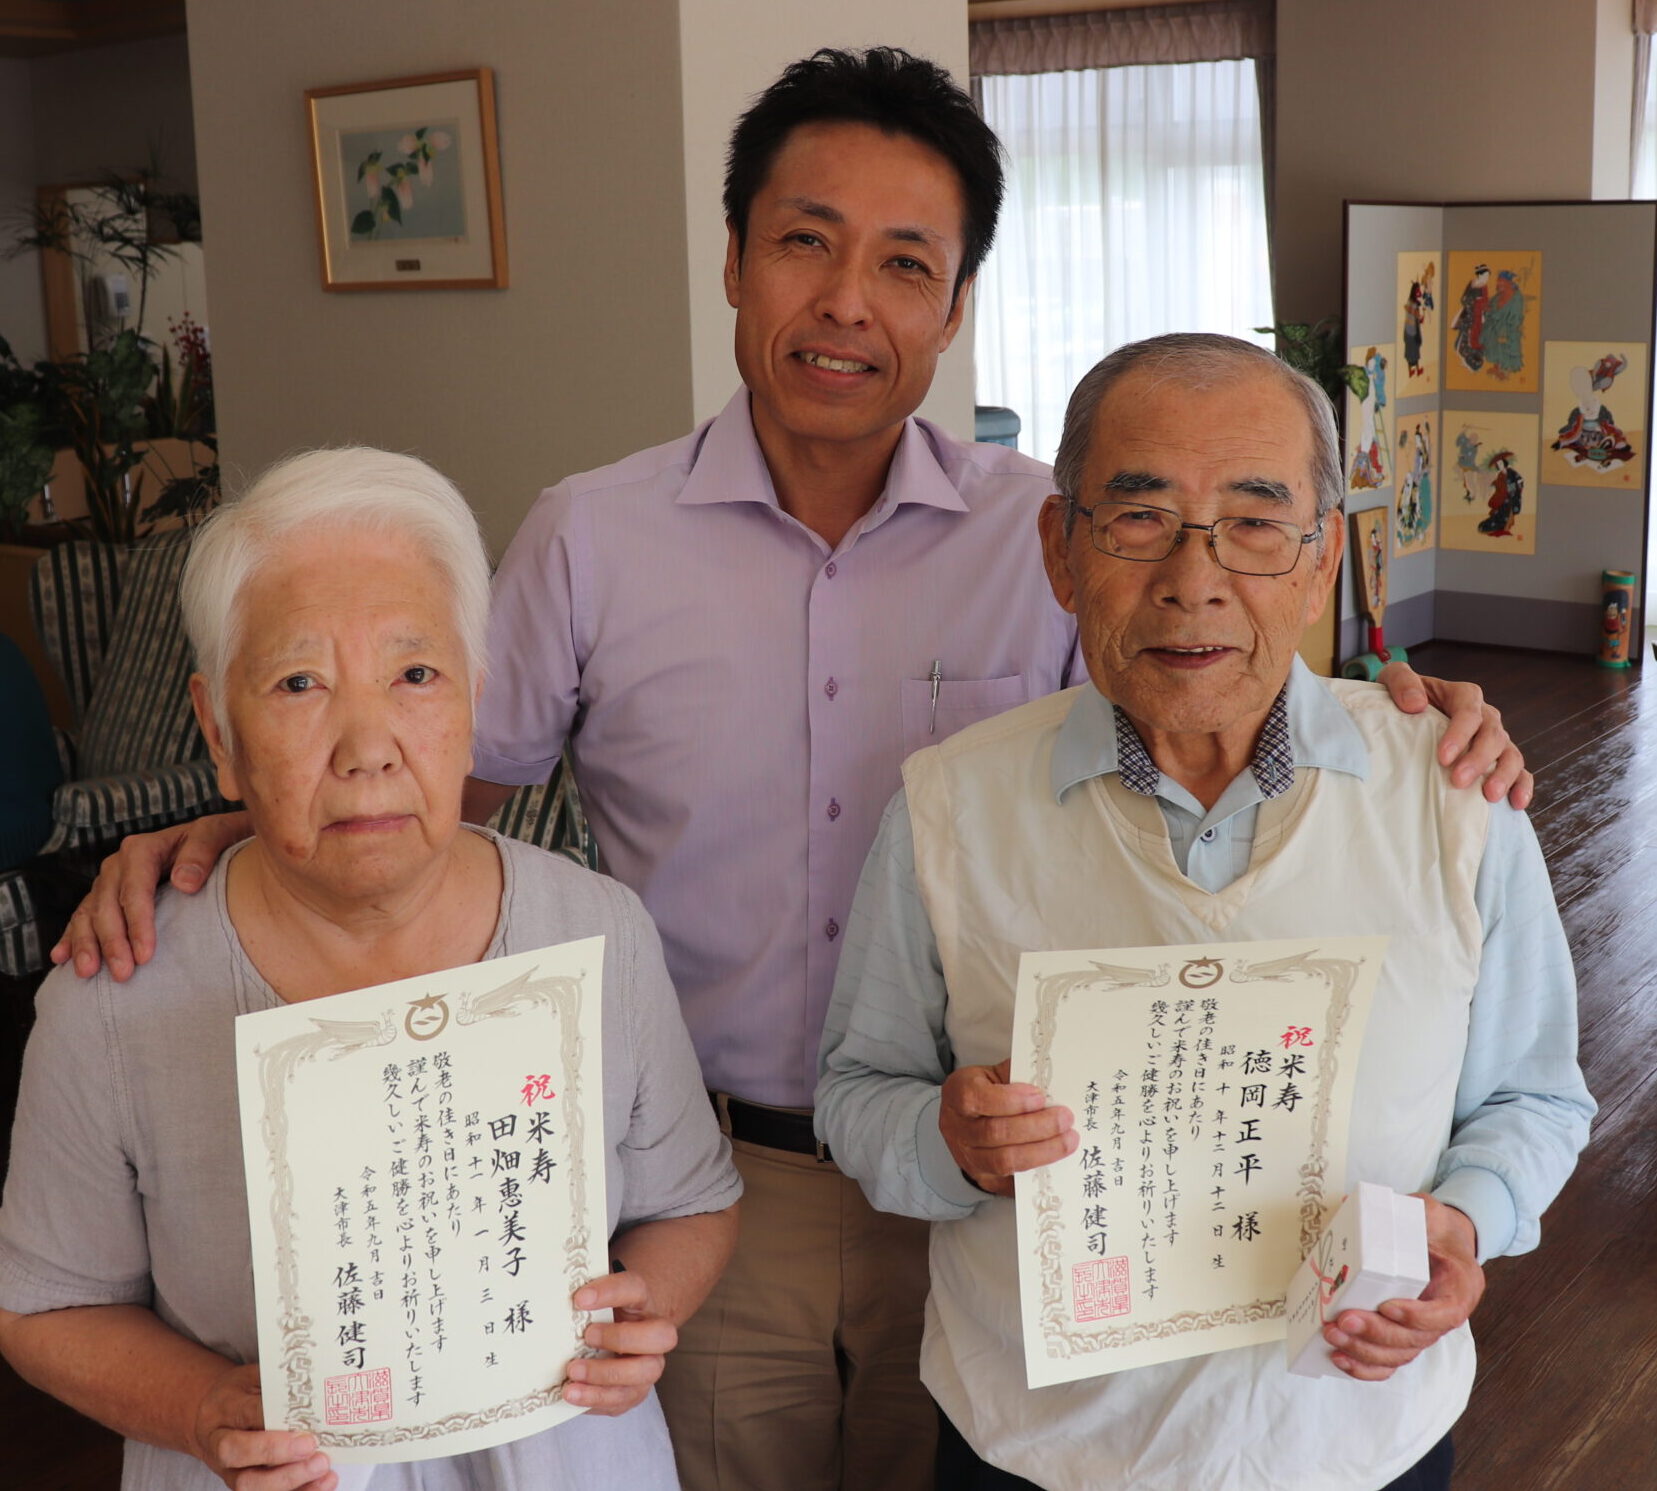 祝 米寿
田畑恵美子 様
昭和 十一 年 一 月 三 日 生
敬老の佳き日にあたり
謹んで米寿のお祝いを申し上げます
幾久しいご健勝を心よりお祈りいたします
令和五年九月 吉日
大津市長 佐藤健司
祝 米寿
徳岡正平 様
昭和 十 年 十二 月 十二 日 生
敬老の佳き日にあたり
謹んで米寿のお祝いを申し上げます
幾久しいご健勝を心よりお祈りいたします
令和五年九月 吉日
大津市長 佐藤健司